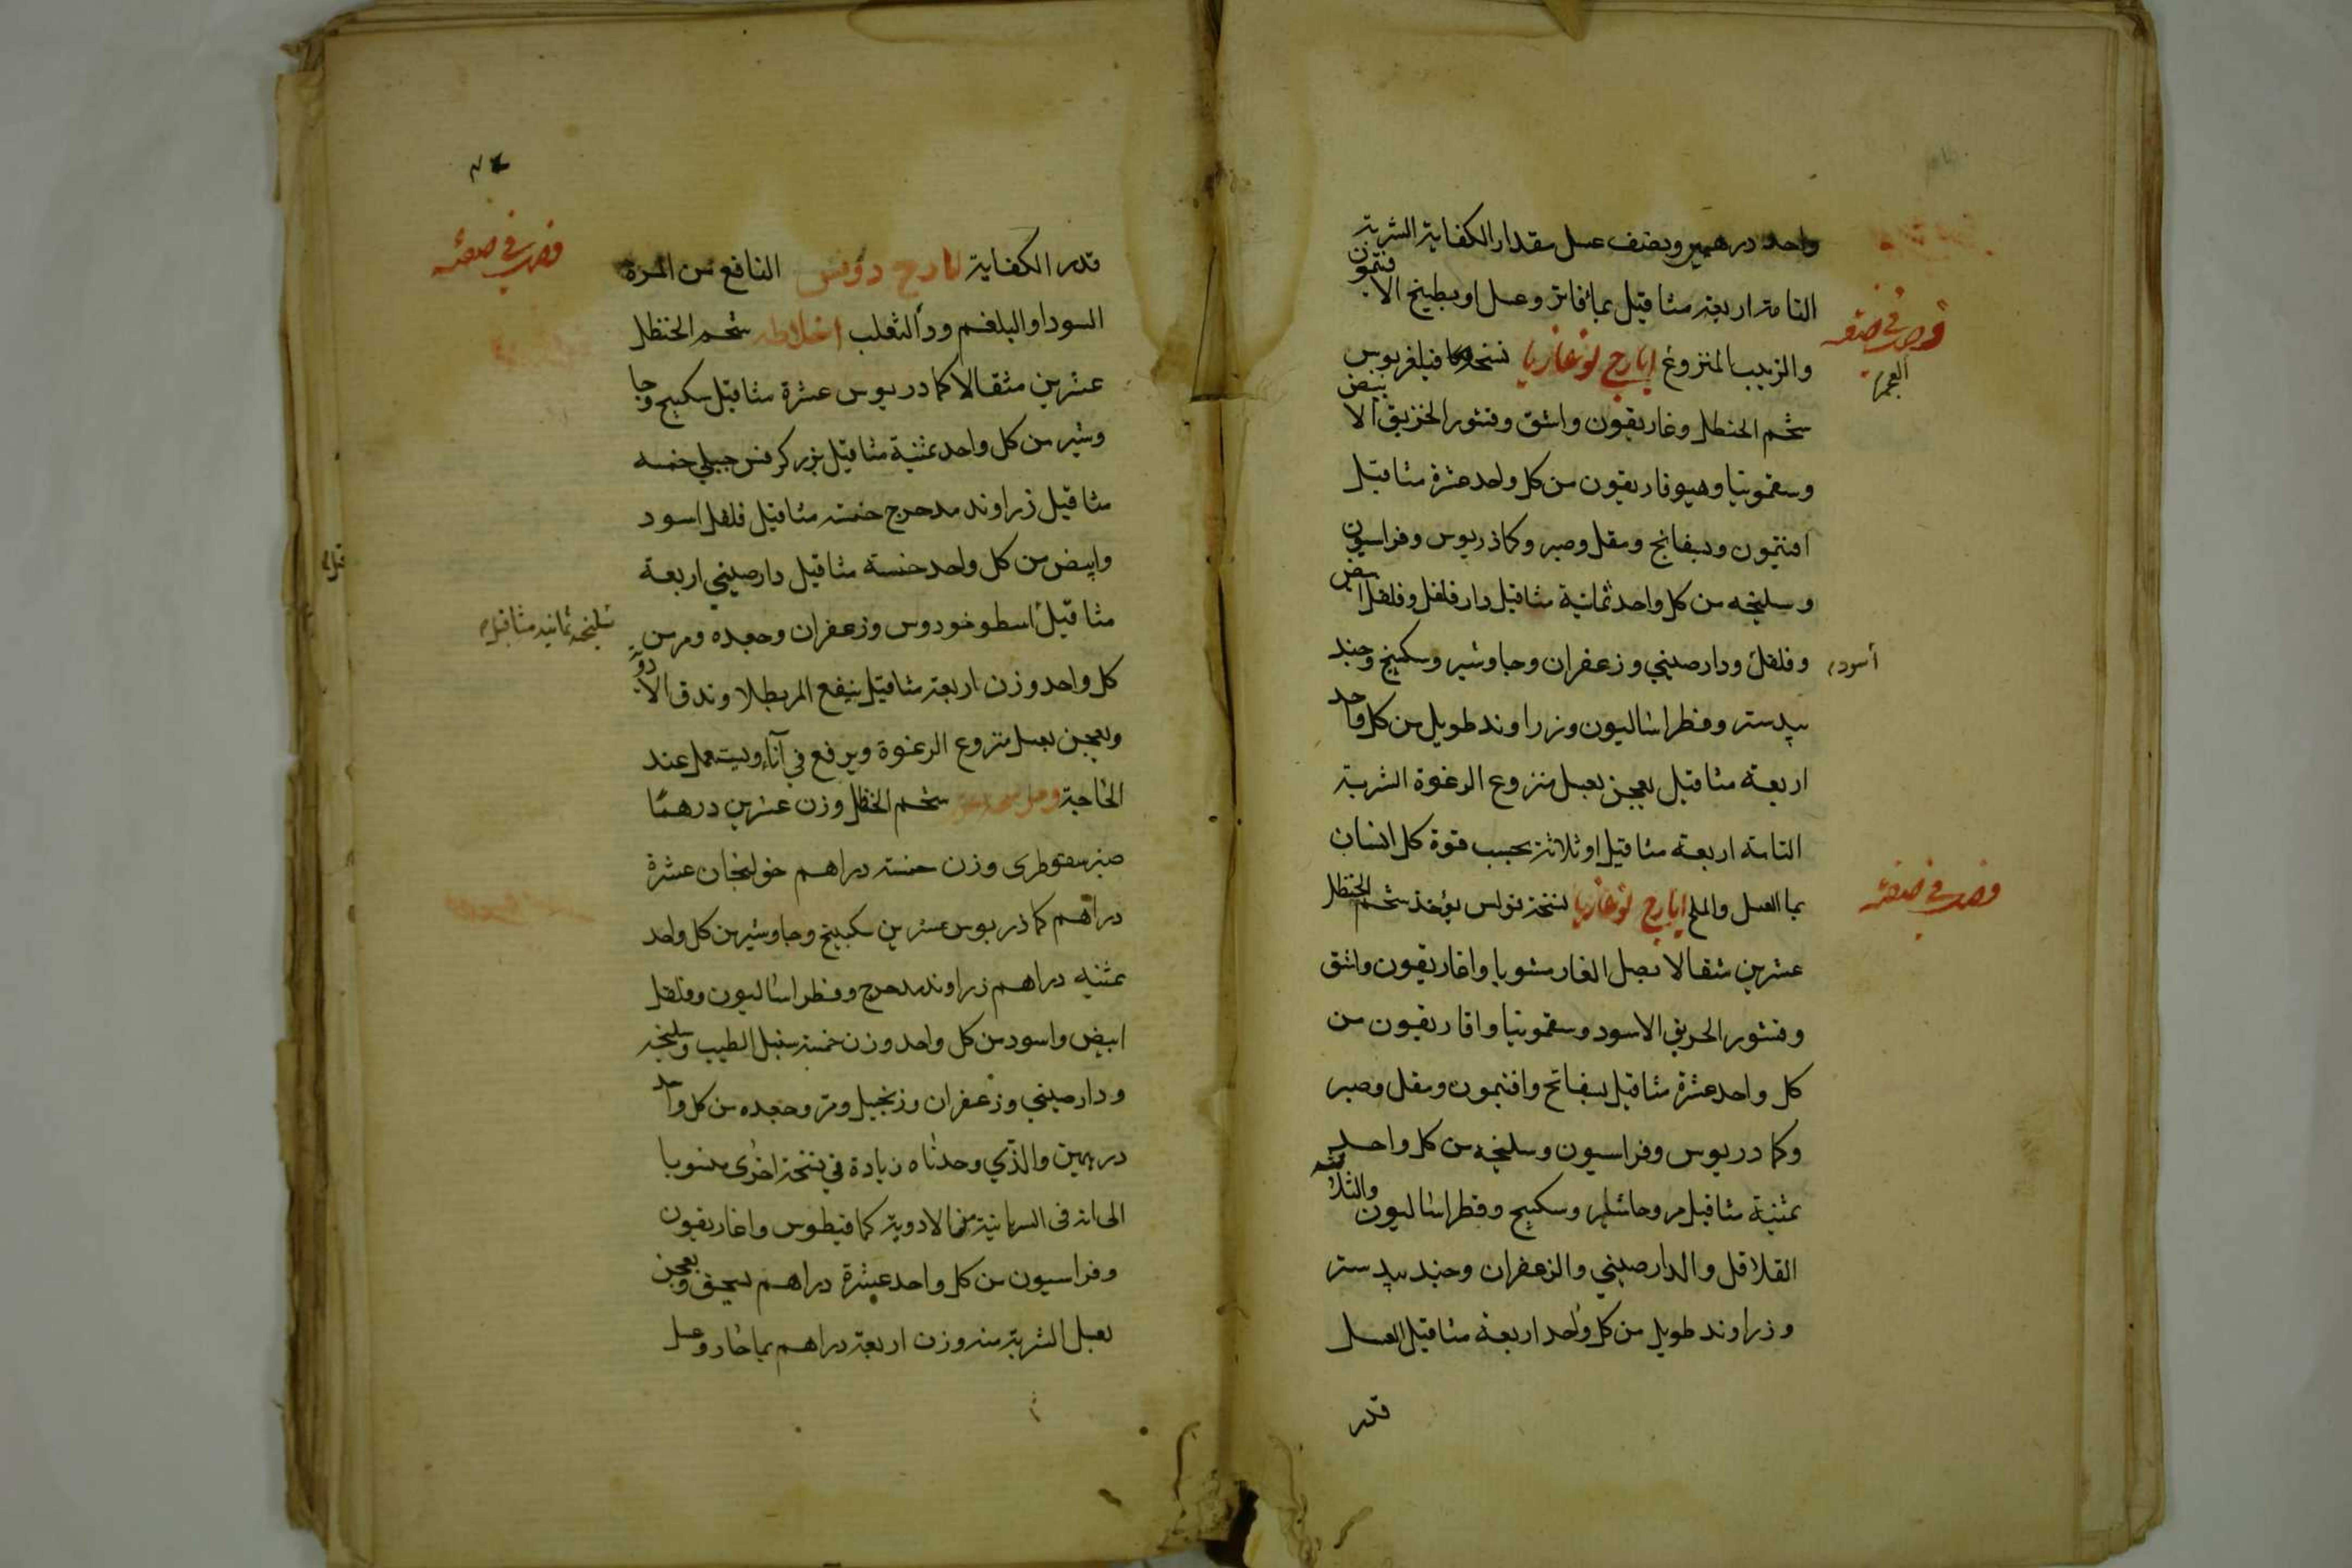 واحد درهمين ويضف عسل مقدار الكفاية الشربة
التامة اربعة مثاقيل بماء فاتر وعسل او بطبيخ الافتمون
والزبيب المنزوع ايارج لوغاذيا نسخة فيلغريوس
شحم الحنظل وغاريقون واشق وقشور الخربق الابيض
وسقمونيا وهيوفاريقون من كل واحد عشرة مثاقيل
افتيمون وبسفانج ومقل وصبر وكماذريوس وفراسيون
وسليخه من كل واحد ثمانية مثاقيل دار فلفل وفلفل ابيض
وفلفل ودارصيني وزعفران وجاوشير وسكبينج وجند
اسود
بيدستر وفطراساليون وزراوند طويل من كل واحد
اربعة مثاقيل يعجن بعسل منزوع الرغوة الشربة
التامة اربعة مثاقيل او ثلاثة بحسب قوة كل انسان
بماء العسل والملح ايارج لوغاذيا نسخة بولس يؤخذ شحم الحنظل
عشرين مثقالا بصل الفار مشويا واغاريقون واشق
وقشور الخربق الاسود وسقمونيا واقاريقون من
كل واحد عشرة مثاقيل بسفانج وافتيمون ومقل وصبر
وكمادريوس وفراسيون وسليخه من كل واحد
ثمنية مثاقيل مر وجاشير وسكبينج وفطراساليون والثلثه
الفلافل والدارصيني والزعفران وجند بيدستر
وزراوند طويل من كل واحد اربعة مثاقيل العسل
قدر
قدر الكفاية ايارج روفس النافع من المرة
السودا والبلغم ودأ الثعلب اخلاطه شحم الحنظل
عشرين مثقالا كمادريوس عشرة مثاقيل سكبينج وجا
وشير من كل واحد ثمنية مثاقيل بزر كرفس جبلي خمسه
مثاقيل زراوند مدحرج خمسه مثاقيل فلفل اسود
وابيض من كل واحد خمسة مثاقيل دارصيني اربعة
مثاقيل اسطوخودوس وزعفران وجعده ومر من
سليخه ثمانيه مثاقيل
كل واحد وزن اربعة مثاقيل ينقع المر بطلا وندق الادوية
ويعجن بعسل منزوع الرغوة ويرفع في آناء ويستعمل عند
الحاجة شحم الحنظل وزن عشرين درهمًا
صبر سقوطرى وزن خمسه دراهم خولنجان عشرة
دراهم كماذريوس عشرين سكبينج وجاوشير من كل واحد
ثمنيه دراهم زراوند مدحرج وفطراساليون وفلفل
ابيض واسود من كل واحد وزن خمسة سنبل الطيب وسليخه
ودارصيني وزعفران وزنجبيل ومر وجعده من كل واحد
درهمين والذي وجدناه زيادة في نسخة اخرى منسوبا
الى انه في السريانية من الادوية كمافيطوس واغاريقون
وفراسيون من كل واحد عشرة دراهم يسحق ويعجن
بعسل الشربة منه وزن اربعة دراهم بماء حار وعسل